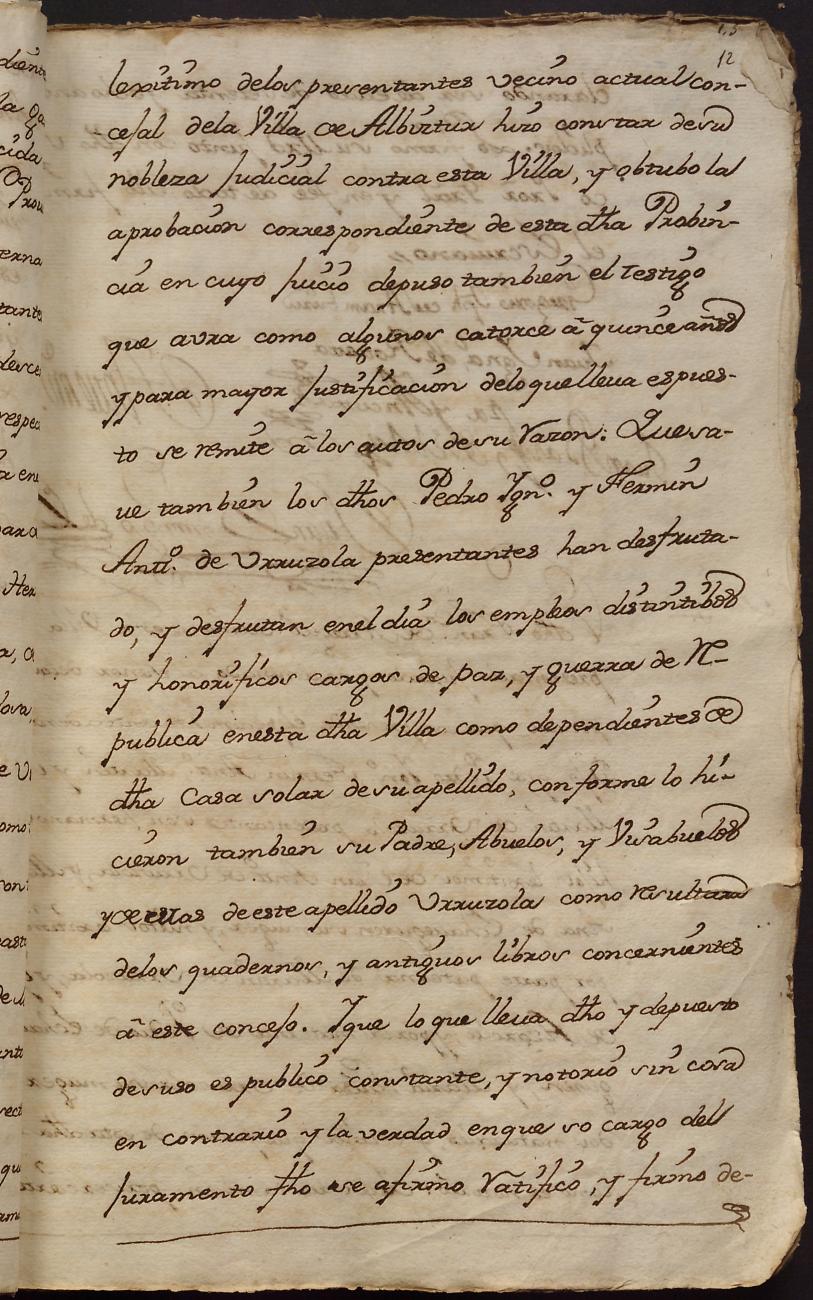 12
lexitimo delos presentantes vecino actual con-
cejal dela Villa de Albiztur hizo constar desu
nobleza Judicial contra esta Villa, y obtubo la
aprobacion correspondiente de esta dha Probin-
cia en cuyo juicio depuso tambien el testigo
que avra como algunos catorce â quince años
y para mayor Justificacion delo que lleva espues-
to se remite â los autos de su razon: Que sa-
ve tambien los dhos Pedro Ygnº. y Fermin
Antº. de Urruzola presentantes han desfruta-
do, y desfrutan enel dia los empleos distintibos
y honorificos cargos de paz, y guerra de Re-
publica enesta dha Villa como dependientes de
dha Casa solar de su apellido, conforme lo hi-
cieron tambien su Padre, Abuelos, y Visabuelos
y de mas de este apellido Urruzola como resultara
delos quadernos, y antiguos libros concernientes
â este concejo. Y que lo que lleva dho y depuesto
desuso es publico constante, y notorio sin cosa
en contrario y la verdad enque so cargo del
juramento fho se afirmo ratifico, y firmo de-